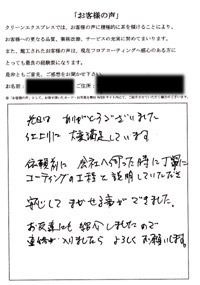 「お客様の声」
クリーンエクスプレスでは、お客様の声に積極的に耳を傾けることにより、
お客様への更なる品質、事務改善、サービスの充実に努めてまいります。
また、施工されたお客様の声は、現在フロアコーティングへ関心のある方に
とっても最良の経験談になります。
是非ともご意見、ご感想をお聞かせ下さい。
お名前
ご住所
先日は ありがとうございました
仕上りに 大変満足しています。
依頼前に 会社へ伺った時に丁寧に
コーティングの工程を説明していただき
安心して まかせる事ができました。
お友達にも 紹介しましたので
連絡が入りましたら よろしくお願いします。